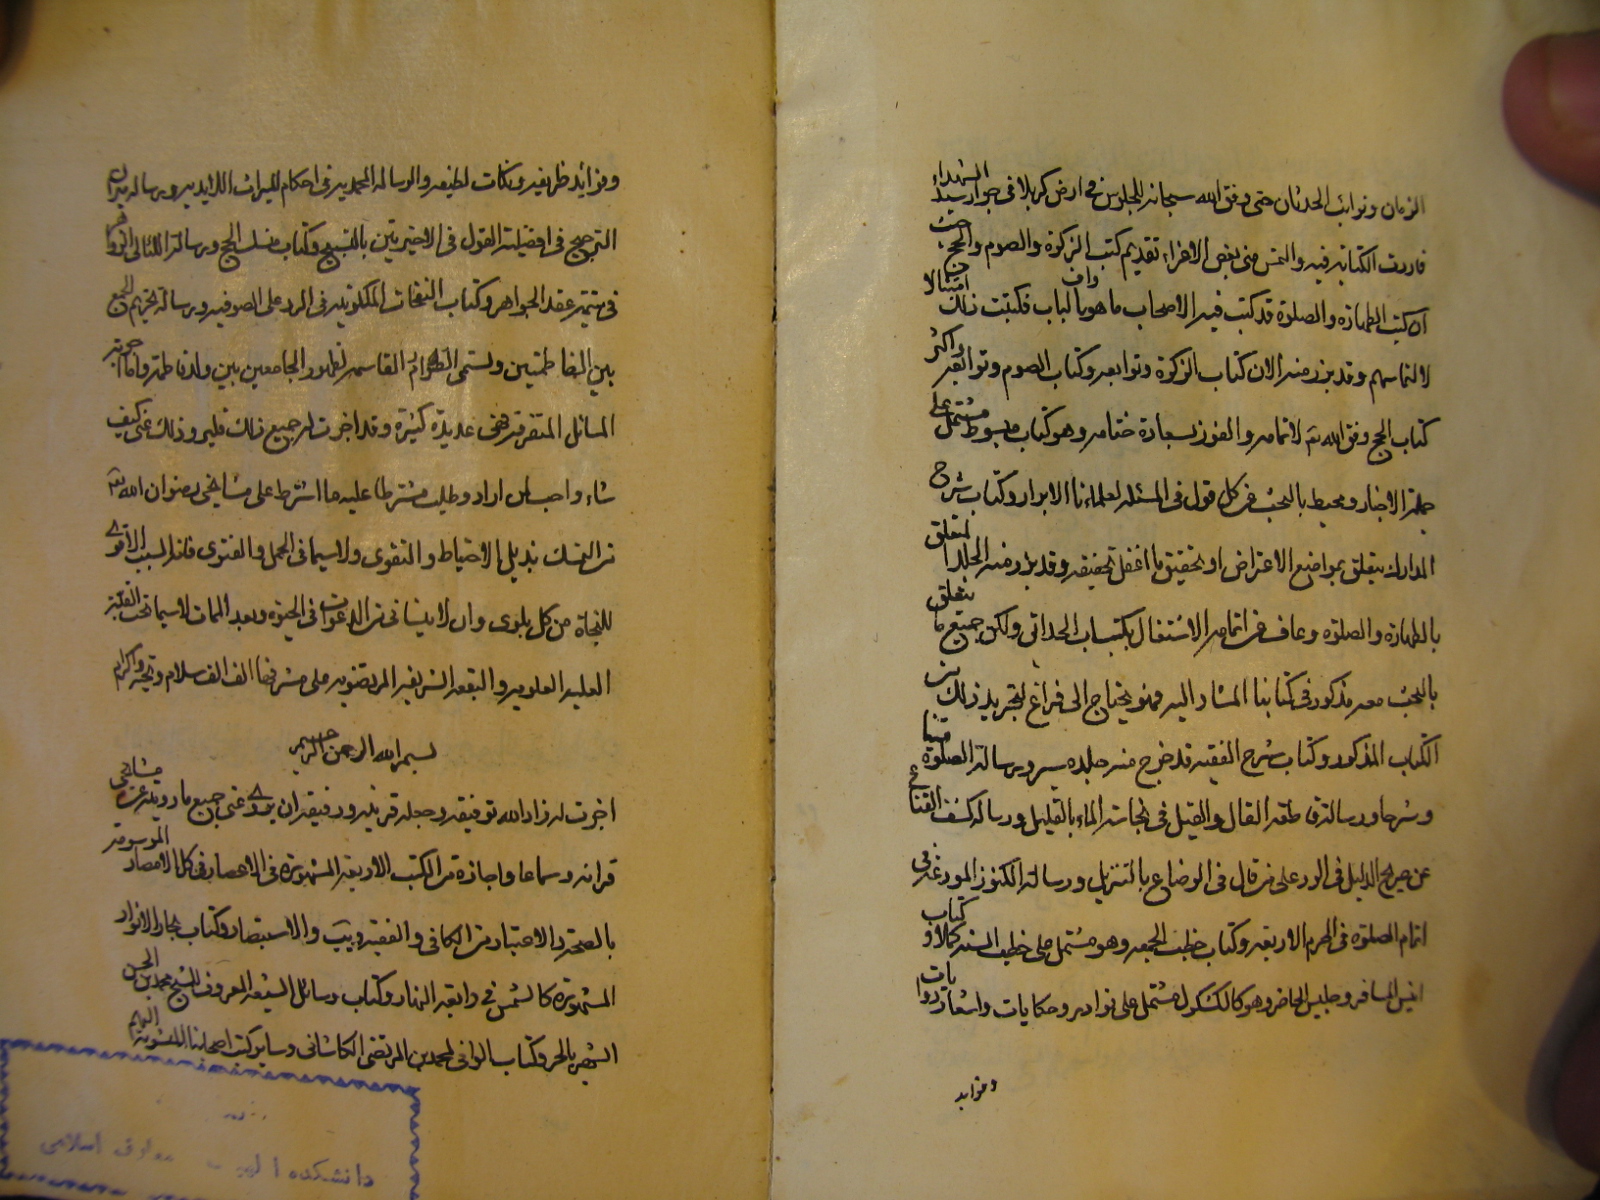 الزمان ونوائب الحدثان حتى وفق الله سبحانه للجلوس في ارض كربلا في جوار سيد الشهداء
فاردت الكتابة فيه والتمس مني بعض الاعزاء تقديم كتب الزكوة والصوم والحج حيث
ان كتب الطهارة والصلوة قد كتب فيه الاصحاب ما هو باللباب واف فكتبت ذلك امتثالا
لالتماسهم وقد برز منه الان كتاب الزكوة وتوابعه وكتاب الصوم وتوابعه واكثر
كتاب الحج وفق الله تع لاتمامه والفوز بسعادة ختامه وهو كتاب مبسوط مشتمل على
جملة الاخبار ومحيط بالبحث عن كل قول في المسئلة لعلمائنا الابرار وكتاب شرح
المدارك يتعلق بمواضع الاعتراض او تحقيق ما اغفل تحقيقه وقد برز منه المجلد المتعلق
بالطهارة والصلوة وعاق عن اتمامه الاشتغال بكتاب الحدائق ولكن جميع ما يتعلق
بالبحث معه مذكور في كتابنا المشار اليه فهو يحتاج الى فراغ لتجريد ذلك من
الكتاب المذكور وكتاب شرح الفقيه قد خرج منه جلده يسير ورسالة الصلوة متنا
وشرحا ورسالة قاطعة القال والقيل في نجاسة الماء بالقليل ورسالة كشف القناع
عن صريح الدليل في الرد على من قال في الرضاع بالتنزيل ورسالة الكنوز المودعة في
اتمام الصلوة في الحرم الاربعة وكتاب خطب الجمعة وهو مشتمل على خطب السنة كملا وكتاب
انيس المسافر وجليس الحاضر وهو كالكشكول مشتمل على نوادر وحكايات واشعار وروايات
وفوايد
وفوائد ظريفة ونكات لطيفة والرسالة المحمدية في احكام الميراث الابدية ورسالة ميزان
الترجيح في افضيلة القول في الاخيرتين بالتسبيح وكتاب مناسك الحج ورسالة اللئالي الزواهر
في تتمة عقد الجواهر وكتاب النفحات الملكوتية في الرد على الصوفية ورسالة تحريم الجمع
بين الفاطميتين وتسمى الصوارم القاسمة لظهور الجامعين بين ولد فاطمة واما اجوبة
المسائل المتفرقة فهي عديدة كثيرة وقد اجزت له جميع ذلك فليرو ذلك عني كيف
شاء واحب لمن اراد وطلب مشترطا عليه ما اشترط على مشايخي رضوان الله تع
من التمسك بذيل الاحتياط والتقوى ولا سيما في العمل والفتوى فانه السبب الاقوى
للنجاة من كل بلوى وان لا ينساني من الدعوات في الحيوة وبعد الممات لا سيما تحت القبة
العلية العلوية والبقعة الشريفة المرتضوية على مشرفها الف الف سلام وتحية واكرام
بسم الله الرحمن الرحيم
اجزت له زاد الله توفيقه وجعله قرينه ورفيقه ان يروي عني جميع ما رويته عن مشايخي
قرائة وسماعا واجازة من الكتب الاربعة المشهورة في الاعصار في كل الامصار الموسومة
بالصحة والاعتبار من الكافي والفقيه ويب والاستبصار وكتاب بحار الانوار
المشهورة كالشمس في رابعة النهار وكتاب وسائل الشيعة المعروف للشيخ محمد بن الحسن
الشهير بالحر وكتاب الوافي لمحمد بن المرتضى الكاشاني وساير كتب اصحابنا المنسوبة اليهم
دانشکده ا معارف اسلامی